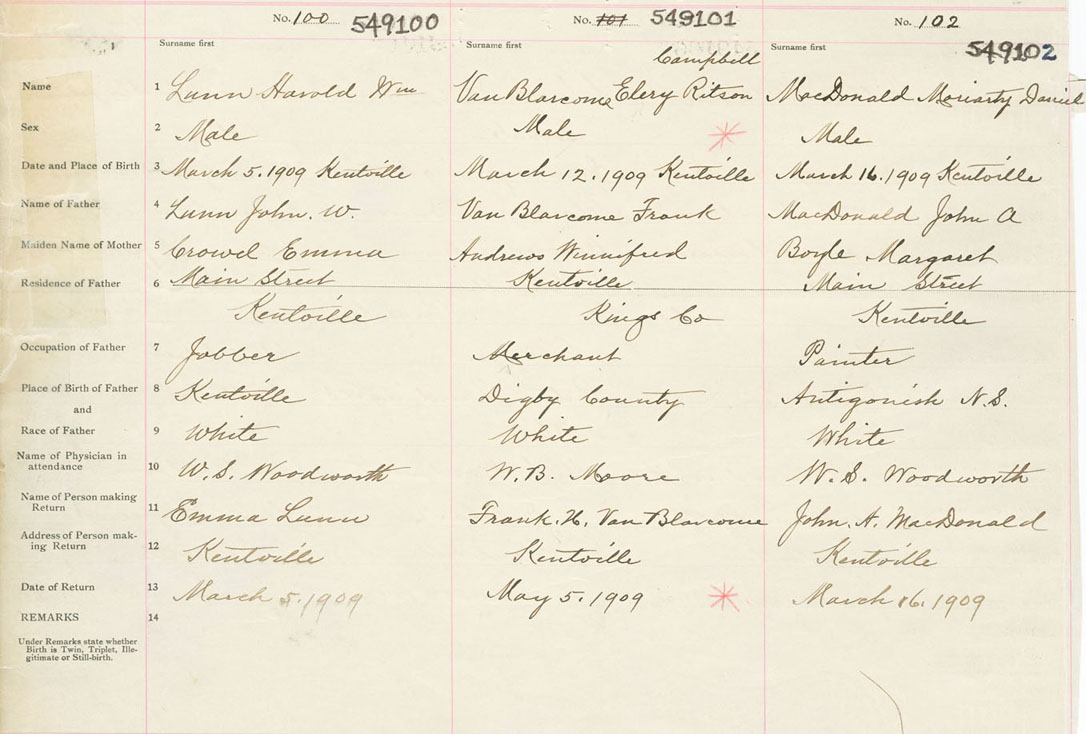 No. 100 549100 No. 101 549101 No. 102 549102
Surname first Surname first Surname first
Campbell
Name 1 Lunn Harold Wm Van Blarcome Elery Ritson MacDonald Moriarty Daniel
Sex 2 Male Male Male
Date and Place of Birth 3 March 5. 1909 Kentville March 12. 1909 Kentville March 16. 1909 Kentville
Name of Father 4 Lunn John. W. Van Blarcome Frank MacDonald John A
Maiden Name of Mother 5 Crowel Emma Andrews Winnifred Boyle Margaret
Residence of Father 6 Main Street Kentville Main Street
Kentville Kings Co Kentville
Occupation of Father 7 Jobber Merchant Painter
Place of Birth of Father 8 Kentville Digby County Antigonish N.S.
and
Race of Father 9 White White White
Name of Physician in
attendance 10 W. S. Woodworth W. B. Moore W. S. Woodworth
Name of Person making
Return 11 Emma Lunn Frank. H. Van Blarcome John. A. MacDonald
Address of Person mak-
ing Return 12 Kentville Kentville Kentville
Date of Return 13 March 5. 1909 May 5. 1909 March 16. 1909
REMARKS 14
Under Remarks state whether
Birth is Twin, Triplet, Ille-
gitimate or Still-birth.